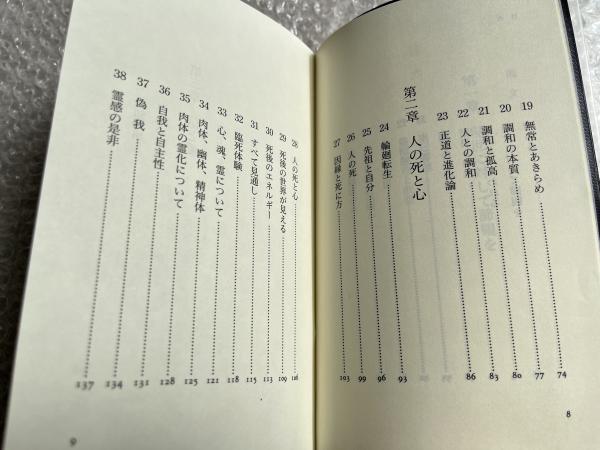 19 無常とあきらめ 74
20 調和の本質 77
21 調和と孤高 80
22 人との調和 83
23 正道と進化論 86
第二章 人の死と心
24 輪廻転生 93
25 先祖と自分 96
26 人の死 99
27 因縁と死に方 103
8
28 人の死と心 106
29 死後の世界が見える 109
30 死後のエネルギー 113
31 すべて見通し 115
32 臨死体験 118
33 心、魂、霊について 121
34 肉体、幽体、精神体 125
35 肉体の霊化について 128
36 自我と自主性 131
37 偽我 134
38 霊感の是非 137
9